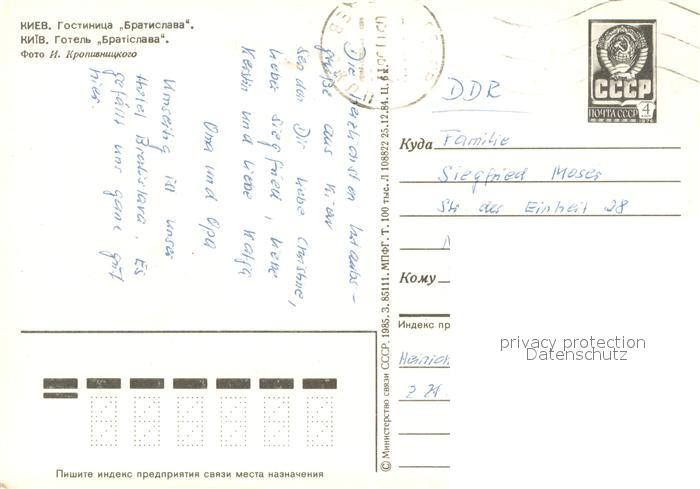 КИЕВ. Гостиница „Братислава“.
КИЇВ. Готель „Братіслава“.
Фото И. Кропивницкого
Die herzlichsten Urlaubs-
grüße aus Kiew
senden Dir liebe Christine,
lieber Siegfried, liebe
Kerstin und liebe Katja
Oma und Opa
Umseitig ist unser
Hotel Bratislava. Es
gefällt uns ganz gut
hier.
© Министерство связи СССР, 1985. З. 85111. МПФГ. Т. 100 тыс. Л 108822 25.12.84. Ц. 6
СССР
ПОЧТА СССР 4
DDR
Куда Familie
Siegfried Moser
Str der Einheit 28
Кому
Индекс пр
privacy protection
Datenschutz
Пишите индекс предприятия связи места назначения